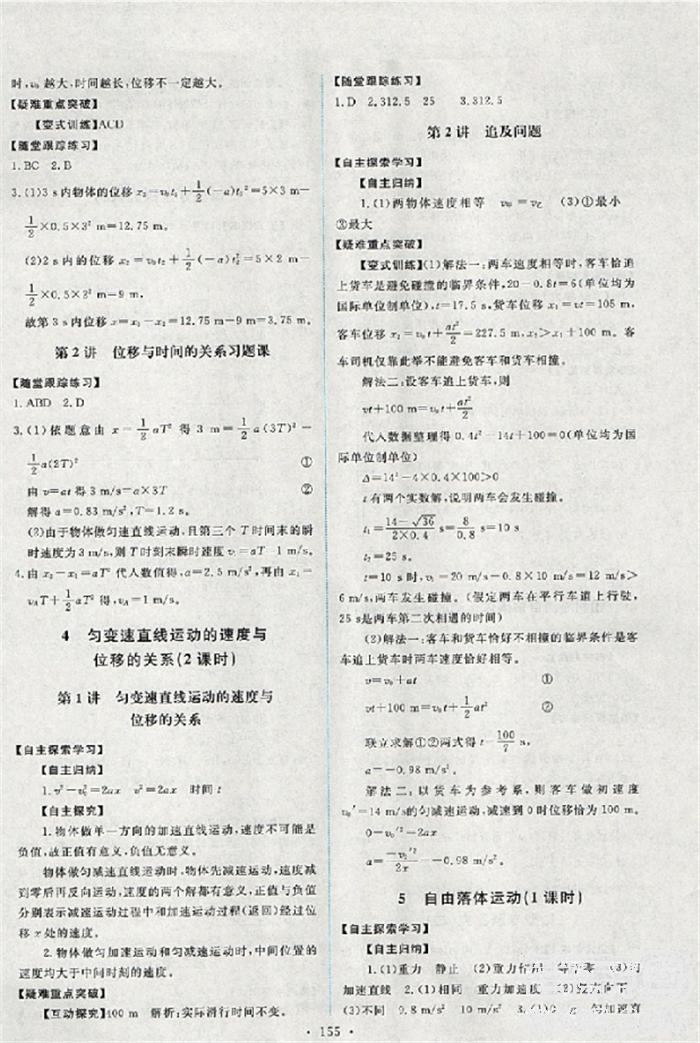 时,v₀ 越大,时间越长,位移不一定越大。
【疑难重点突破】
【变式训练】ACD
【随堂跟踪练习】
1.BC 2.B
3.(1)3 s内物体的位移 x₃=v₀t₁+1/2(-a)t₃²=5×3 m-
1/2×0.5×3² m=12.75 m。
(2)2 s内的位移 x₂=v₀t₂+1/2(-a)t₂²=5×2 m-
1/2×0.5×2² m=9 m。
故第3 s内位移 x=x₁-x₂=12.75 m-9 m=3.75 m。
第2讲 位移与时间的关系习题课
【随堂跟踪练习】
1.ABD 2.D
3.(1)依题意由 x=1/2aT² 得 3 m=1/2a(3T)²-
1/2a(2T)² ①
由 v=at 得 3 m/s=a×3T ②
解得 a=0.83 m/s²,T=1.2 s。
(2)由于物体做匀速直线运动,且第三个T时间末的瞬
时速度为3 m/s,则T时刻末瞬时速度 v₁=aT=1 m/s。
4.由 x₂-x₁=aT² 代入数值得,a=2.5 m/s²,再由 x₁=
v_AT+1/2aT² 得,v_A=1 m/s。
4 匀变速直线运动的速度与
位移的关系(2课时)
第1讲 匀变速直线运动的速度与
位移的关系
【自主探索学习】
【自主归纳】
1.v²-v₀²=2ax v²=2ax 时间t
【自主探究】
1.物体做单一方向的加速直线运动,速度不可能是
负值,故正值有意义,负值无意义。
物体做匀减速直线运动时,物体先减速运动,速度减
到零后再反向运动,速度的两个解都有意义,正值与负值
分别表示减速运动过程中和加速运动过程(返回)经过位
移x处的速度。
2.物体做匀加速运动和匀减速运动时,中间位置的
速度均大于中间时刻的速度。
【疑难重点突破】
【互动探究】400 m 解析:实际滑行时间不变。
【随堂跟踪练习】
1.D 2.312.5 25 3.312.5
第2讲 追及问题
【自主探索学习】
【自主归纳】
1.(1)两物体速度相等 (3)①最小
③最大
【疑难重点突破】
【变式训练】(1)解法一:两车速度相等时,客车恰追
上货车是避免碰撞的临界条件,20-0.8t=6(单位均为
国际单位制单位),t=17.5 s,货车位移 x₁=vt=105 m,
客车位移 x₂=v₀t+at²/2=227.5 m,x₂>x₁+100 m。客
车司机仅靠此举不能避免客车和货车相撞。
解法二:设客车追上货车,则
vt+100 m=v₀t+at²/2
代入数据整理得 0.4t²-14t+100=0(单位均为国
际单位制单位)
Δ=14²-4×0.4×100>0
t有两个实数解,说明两车会发生碰撞。
t₁=(14-√36)/(2×0.4) s=8/0.8 s=10 s
t₂=25 s。
t=10 s时,v₁=20 m/s-0.8×10 m/s=12 m/s>
6 m/s,两车发生碰撞。(假定两车在平行车道上行驶,
25 s是两车第二次相遇的时间)
(2)解法一:客车和货车恰好不相撞的临界条件是客
车追上货车时两车速度恰好相等。
v=v₀+at ①
vt+100 m=v₀t+1/2at² ②
联立求解①②两式得 t=100/7 s,
a=-0.98 m/s²。
解法二:以货车为参考系,则客车做初速度
v₀′=14 m/s的匀减速运动,减速到0时位移恰为100 m。
0-v₀′²=2ax
a=-v₀′²/2x=-0.98 m/s²。
5 自由落体运动(1课时)
【自主探索学习】
【自主归纳】
1.(1)重力 静止 (2)重力作用
匀加速直线 2.(1)相同 重力加速度 (2)竖直向下
(3)不同 9.8 m/s² 10 m/s² 3.(1)0 匀加速直
155